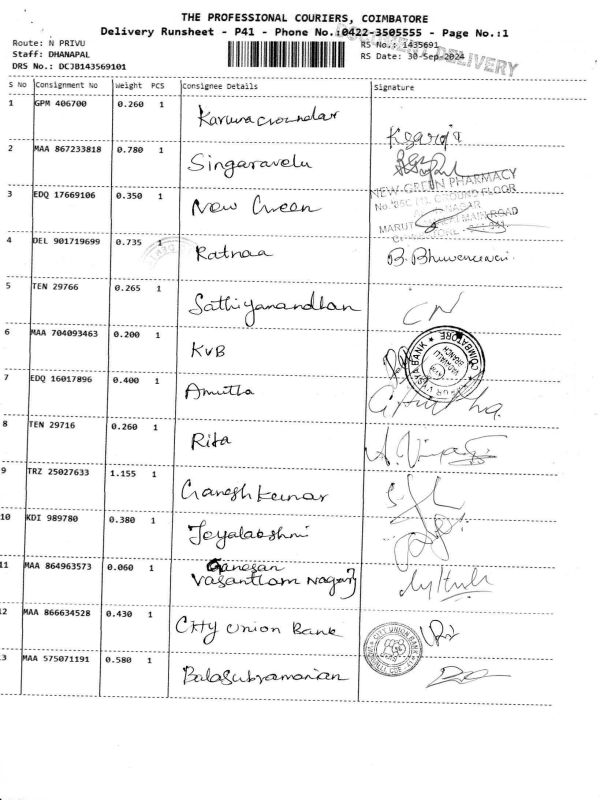 THE PROFESSIONAL COURIERS, COIMBATORE
Delivery Runsheet - P41 - Phone No.:0422-3505555 - Page No.:1
Route: N PRIVU
RS No.: 1435691
Staff: DHANAPAL
RS Date: 30-Sep-2024
DRS No.: DCJB143569101
DOCUMENT DELIVERY
S No Consignment No Weight PCS Consignee Details Signature
1 GPM 406700 0.260 1 Karuna
2 MAA 867233818 0.780 1 Singaravelu
NEW GREEN PHARMACY
3 EDQ 17669106 0.350 1 New Green
4 DEL 901719699 0.735 1 Ratnaa B. Bhuvaneswari
5 TEN 29766 0.265 1 Sathiyanandhan
6 MAA 704093463 0.200 1 KVB
COIMBATORE
7 EDQ 16017896 0.400 1 Amutha
8 TEN 29716 0.260 1 Rita
9 TRZ 25027633 1.155 1 Ganeshkumar
10 KDI 989780 0.380 1 Jeyalakshmi
11 MAA 864963573 0.060 1 Ganesan
Vasantham Nagar
12 MAA 866634528 0.430 1 City Union Bank
CITY UNION BANK
3 MAA 575071191 0.580 1 Balasubramanian